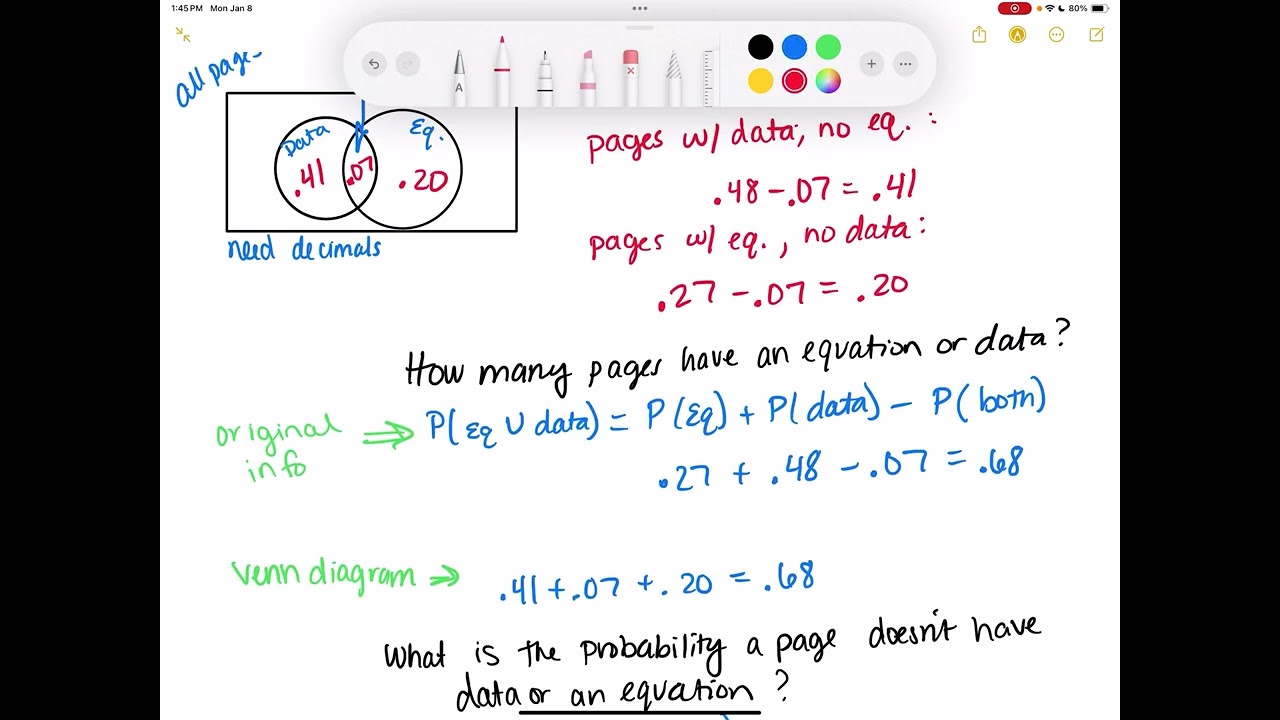 1:45 PM Mon Jan 8
80%
A
all page-
Data
Eq.
.41
.07
.20
need decimals
pages w/ data, no eq. :
.48 - .07 = .41
pages w/ eq., no data:
.27 - .07 = .20
How many pages have an equation or data?
original info ⇒ P(Eq ∪ data) = P(Eq) + P(data) - P(both)
.27 + .48 - .07 = .68
venn diagram ⇒ .41 + .07 + .20 = .68
What is the probability a page doesn't have
data or an equation ?